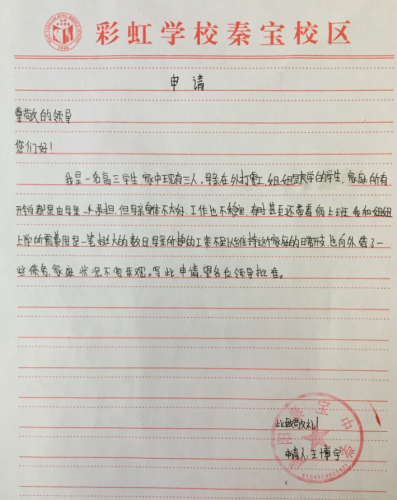 彩虹学校秦宝校区
申请
尊敬的领导
您们好!
我是一名高三学生,家中现有三人,母亲在外打零工,姐姐是大学的学生,家庭所有
开销都是由母亲一人承担,但母亲身体不太好,工作也不稳定,有时甚至还带着病上班,我和姐姐
上学所需费用是一笔极大的数目,母亲所挣的工资不足以维持这个家庭的日常开支,也向外借了一
些债务,家庭状况不容乐观。写此申请,望各位领导批准。
秦宝中学
此致敬礼!
申请人:王博宇